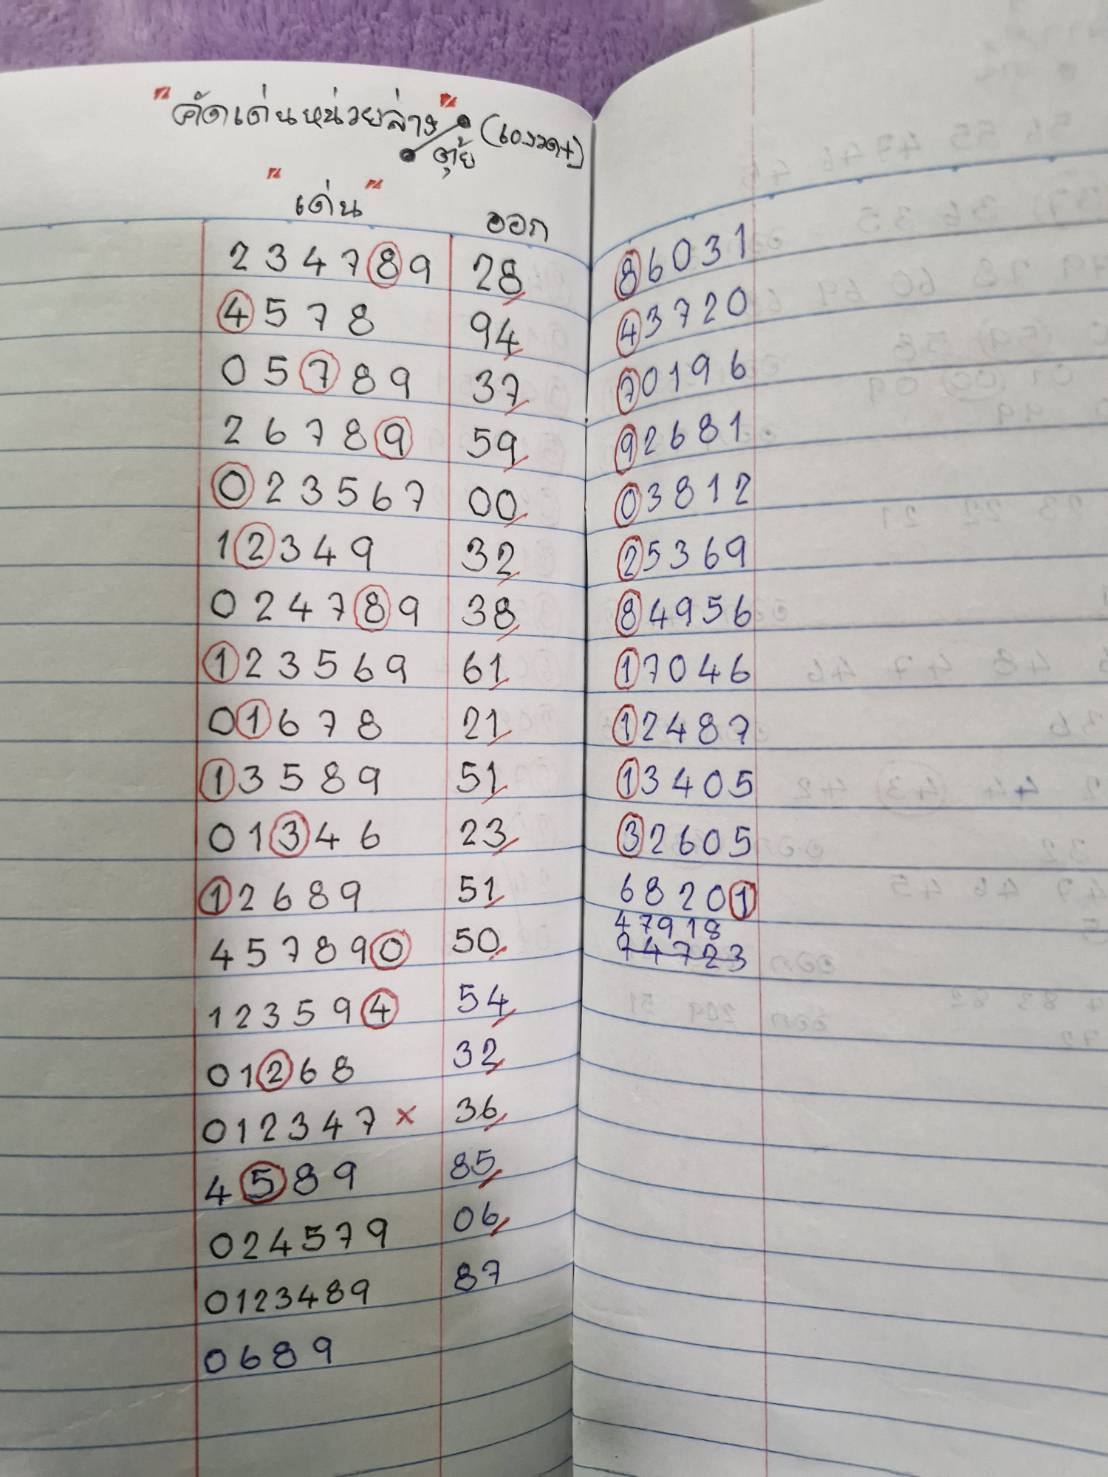 "คัดเด่นหน่วยล่าง" (เองวด+)
ตุ้ย
"เด่น" ออก
234789 28 86031
4578 94 43720
05789 37 70196
26789 59 92681
023567 00 03812
12349 32 25369
024789 38 84956
123569 61 17046
01678 21 12487
13589 51 13405
01346 23 32605
12689 51 68201
47918
457890 50 74723
123594 54
01268 32
012347 × 36
4589 85
024579 06
0123489 87
0689